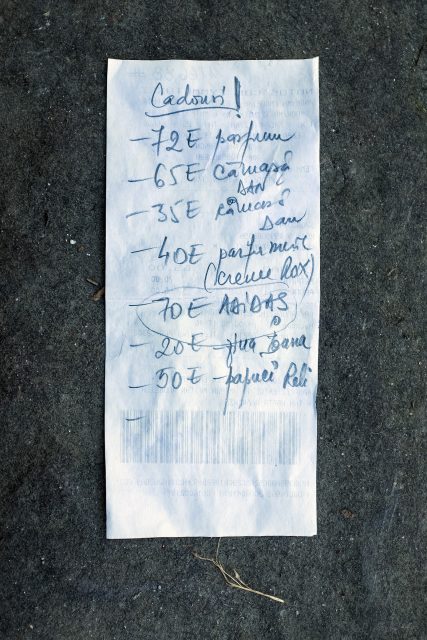 Cadouri!
-72E parfum
-65E cămașă
DAN
-35E cămașă
Dan
-40E parfumerie
(creme Rox)
-70E ADIDAS
-20E ziua Oana
-50E -papuci Rali
-